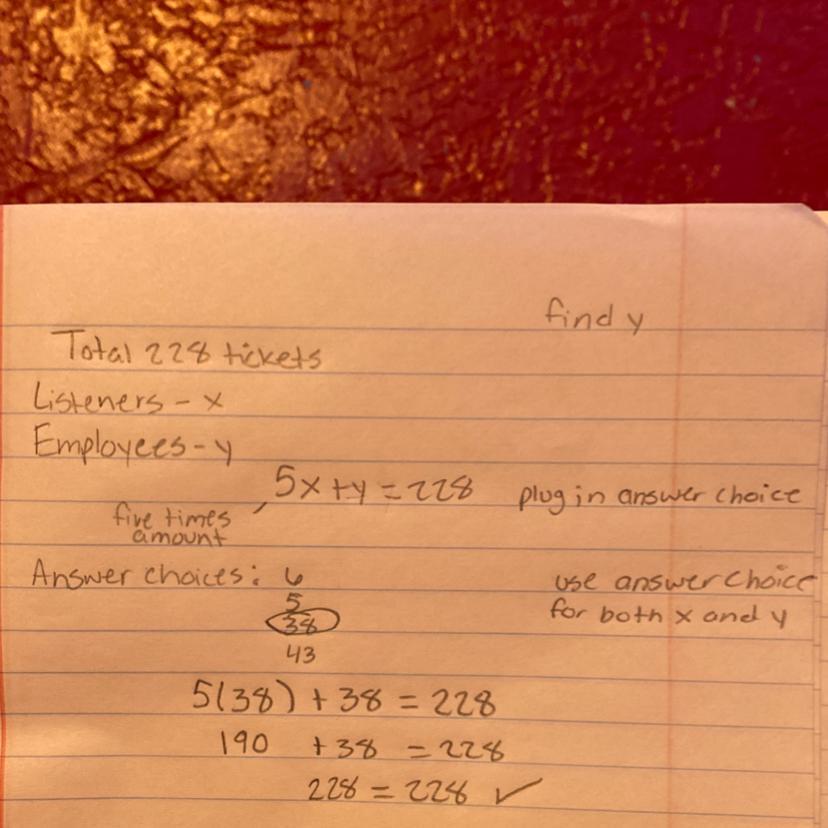 find y
Total 228 tickets
Listeners - x
Employees - y
5x + y = 228 plug in answer choice
five times
amount
Answer choices: 6 use answer choice
5 for both x and y
38
43
5(38) + 38 = 228
190 + 38 = 228
228 = 228 ✓